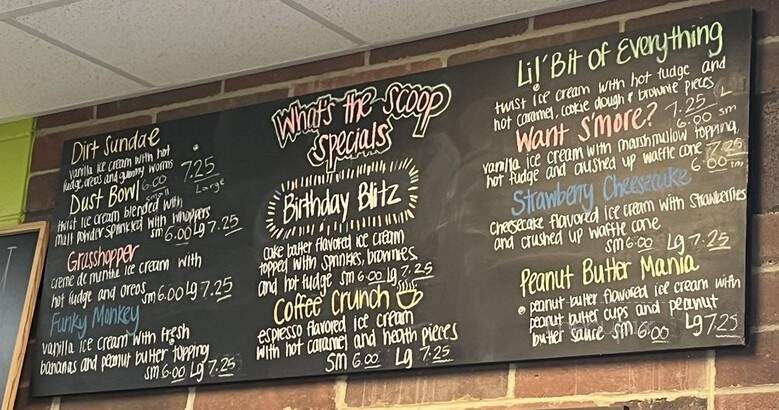 Dirt Sundae
vanilla ice cream with hot
fudge, oreos and gummy worms
7.25
Large
6.00
small
Dust Bowl
twist ice cream blended with
malt powder sprinkled with whoppers
sm 6.00 Lg 7.25
Grasshopper
creme de menthe ice cream with
hot fudge and oreos sm 6.00 Lg 7.25
Funky Monkey
vanilla ice cream with fresh
bananas and peanut butter topping
sm 6.00 Lg 7.25
What's the scoop
specials
Birthday Blitz
cake batter flavored ice cream
topped with sprinkles, brownies,
and hot fudge sm 6.00 Lg 7.25
Coffee Crunch
espresso flavored ice cream
with hot caramel and heath pieces
sm 6.00 Lg 7.25
Lil' Bit of Everything
twist ice cream with hot fudge and
hot caramel, cookie dough & brownie pieces
7.25 L
6.00 sm
Want S'more?
vanilla ice cream with marshmallow topping,
hot fudge and crushed up waffle cone 7.25
6.00 sm
Strawberry Cheesecake
cheesecake flavored ice cream with strawberries
and crushed up waffle cone
sm 6.00 Lg 7.25
Peanut Butter Mania
peanut butter flavored ice cream with
peanut butter cups and peanut
butter sauce sm 6.00 Lg 7.25